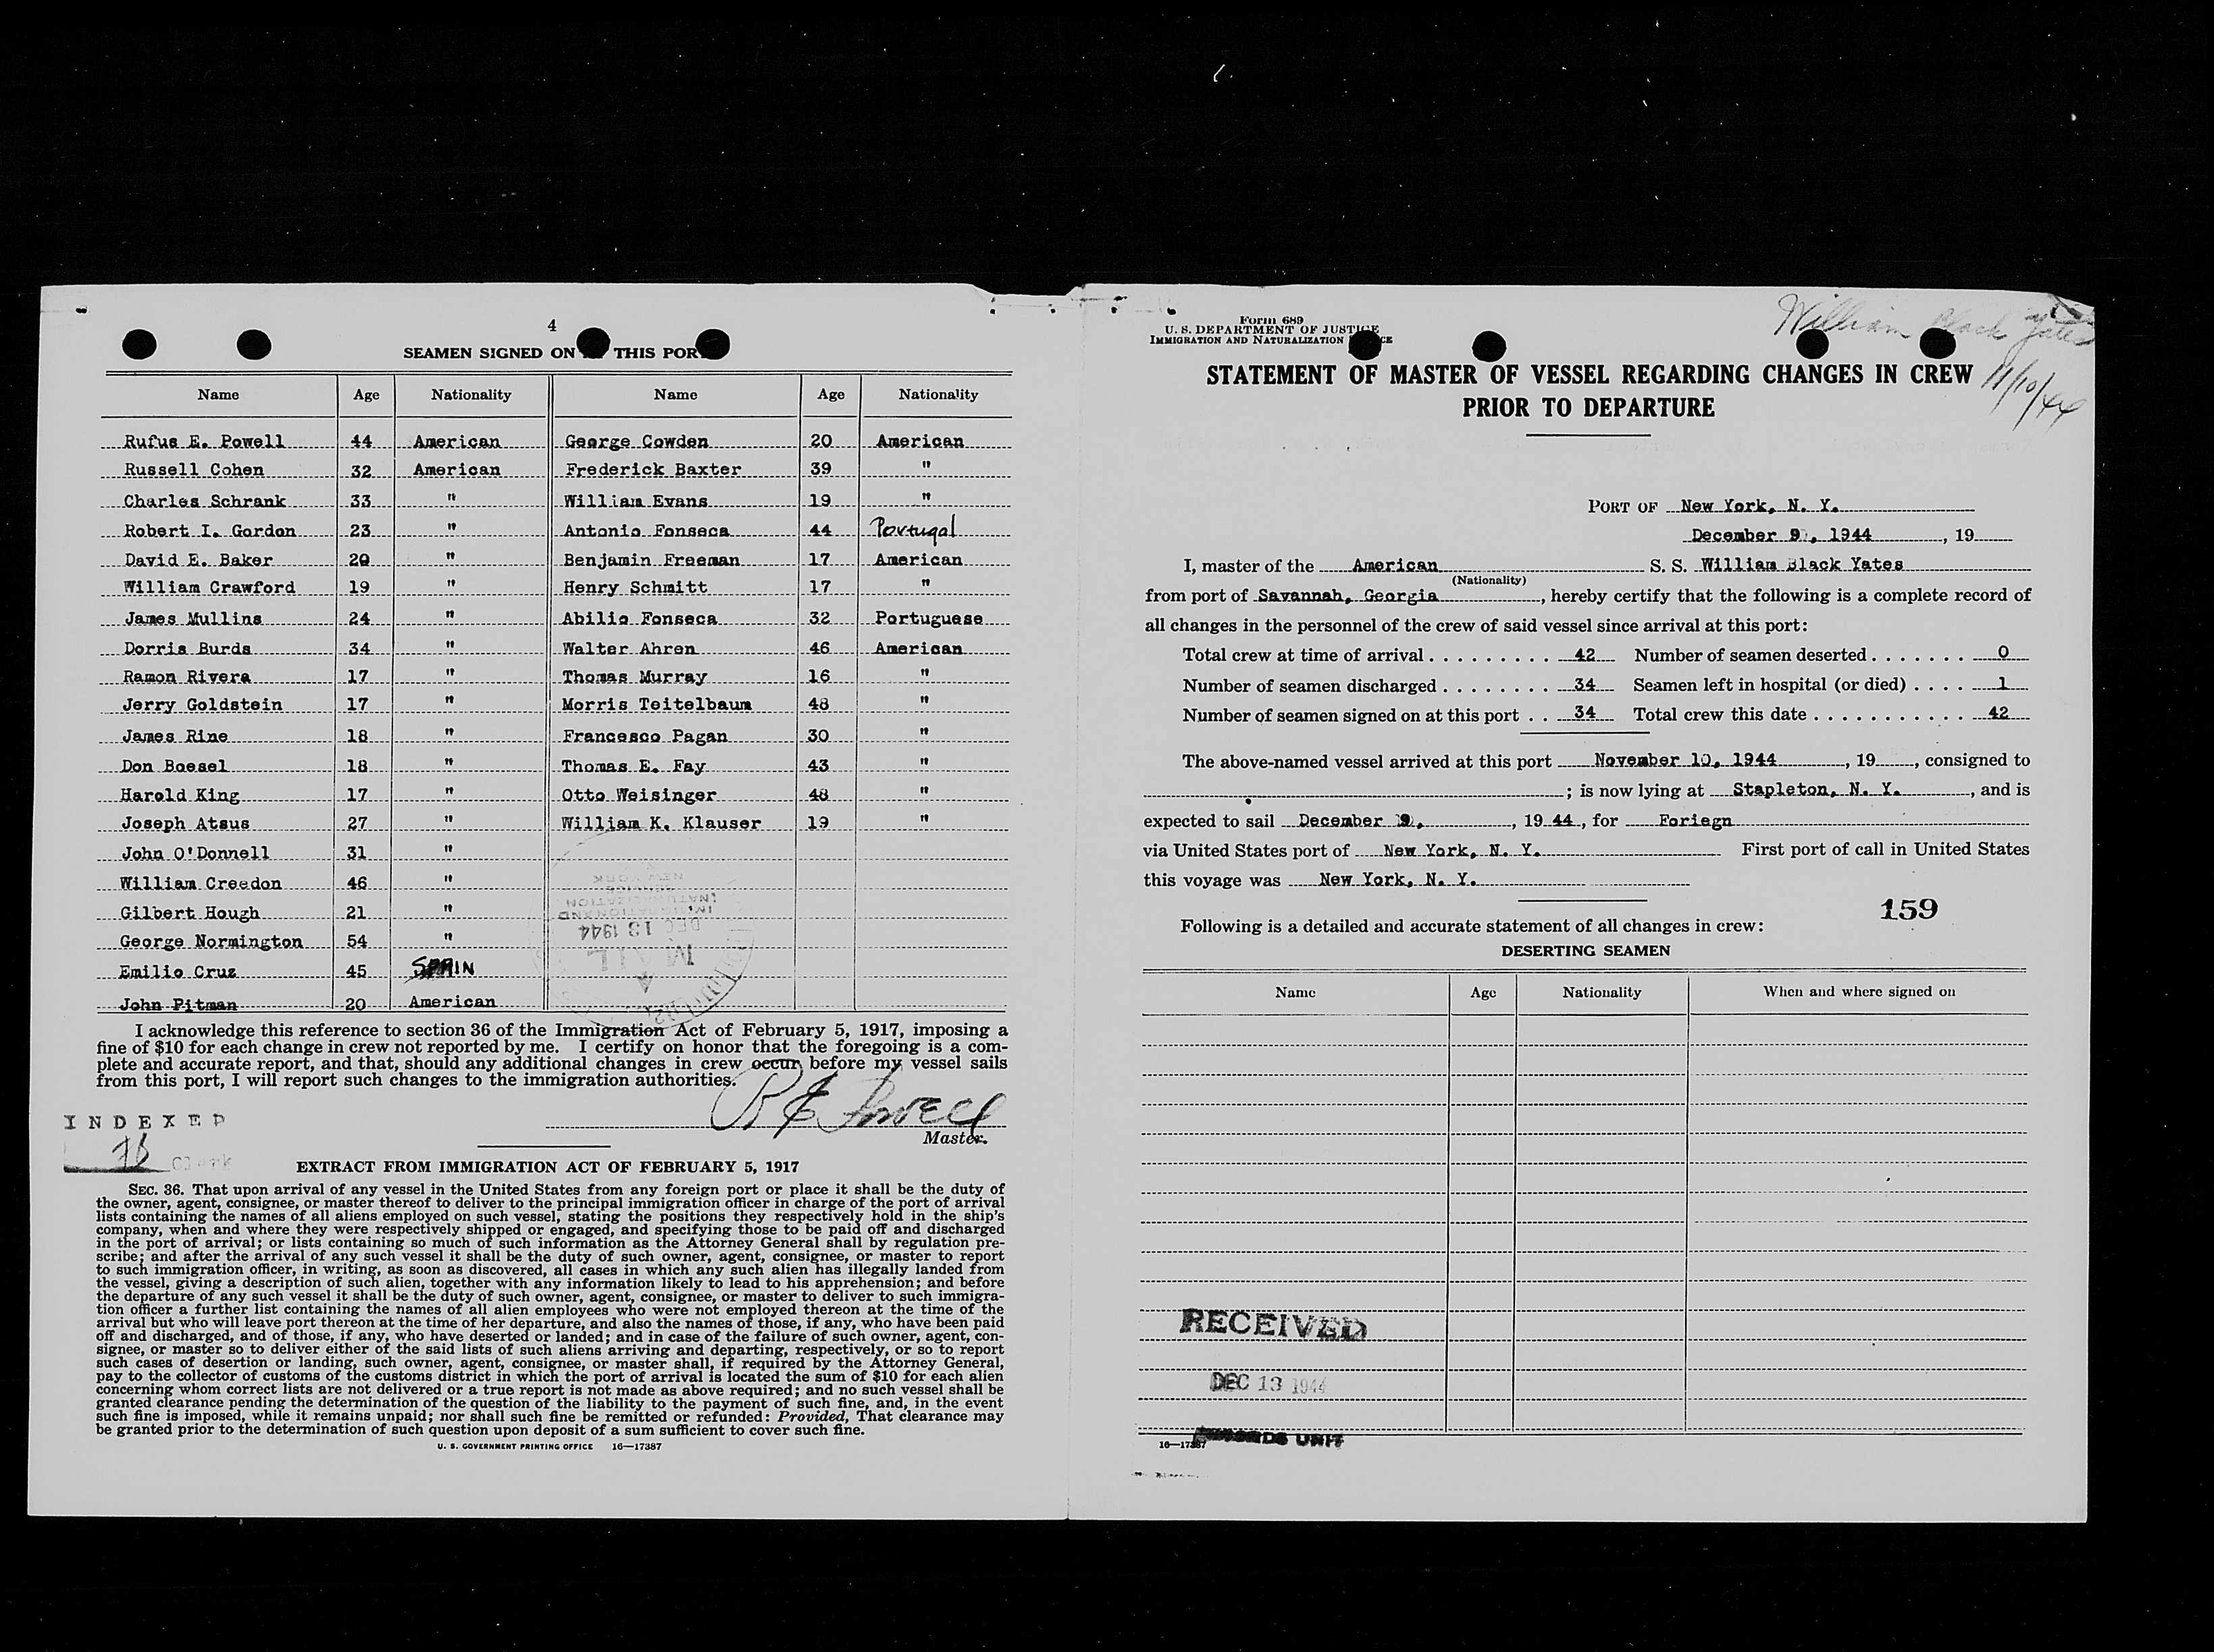 4
SEAMEN SIGNED ON THIS POR
Name Age Nationality Name Age Nationality
Rufus E. Powell 44 American George Cowden 20 American
Russell Cohen 32 American Frederick Baxter 39 "
Charles Schrank 33 " William Evans 19 "
Robert I. Gordon 23 " Antonio Fonseca 44 Portugal
David E. Baker 20 " Benjamin Freeman 17 American
William Crawford 19 " Henry Schmitt 17 "
James Mullins 24 " Abilio Fonseca 32 Portuguese
Dorris Burds 34 " Walter Ahren 46 American
Ramon Rivera 17 " Thomas Murray 16 "
Jerry Goldstein 17 " Morris Teitelbaum 48 "
James Rine 18 " Francesco Pagan 30 "
Don Boesel 18 " Thomas E. Fay 43 "
Harold King 17 " Otto Weisinger 48 "
Joseph Atsus 27 " William K. Klauser 19 "
John O'Donnell 31 "
William Creedon 46 "
Gilbert Hough 21 "
George Normington 54 "
Emilio Cruz 45 SPAIN
John Pitman 20 American
NEW YORK
SERVICE
NATURALIZATION
IMMIGRATION AND
DEC 13 1944
MAIL
I acknowledge this reference to section 36 of the Immigration Act of February 5, 1917, imposing a
fine of $10 for each change in crew not reported by me. I certify on honor that the foregoing is a com-
plete and accurate report, and that, should any additional changes in crew occur before my vessel sails
from this port, I will report such changes to the immigration authorities.
R E Powell
Master.
INDEXED
Clerk
EXTRACT FROM IMMIGRATION ACT OF FEBRUARY 5, 1917
SEC. 36. That upon arrival of any vessel in the United States from any foreign port or place it shall be the duty of
the owner, agent, consignee, or master thereof to deliver to the principal immigration officer in charge of the port of arrival
lists containing the names of all aliens employed on such vessel, stating the positions they respectively hold in the ship's
company, when and where they were respectively shipped or engaged, and specifying those to be paid off and discharged
in the port of arrival; or lists containing so much of such information as the Attorney General shall by regulation pre-
scribe; and after the arrival of any such vessel it shall be the duty of such owner, agent, consignee, or master to report
to such immigration officer, in writing, as soon as discovered, all cases in which any such alien has illegally landed from
the vessel, giving a description of such alien, together with any information likely to lead to his apprehension; and before
the departure of any such vessel it shall be the duty of such owner, agent, consignee, or master to deliver to such immigra-
tion officer a further list containing the names of all alien employees who were not employed thereon at the time of the
arrival but who will leave port thereon at the time of her departure, and also the names of those, if any, who have been paid
off and discharged, and of those, if any, who have deserted or landed; and in case of the failure of such owner, agent, con-
signee, or master so to deliver either of the said lists of such aliens arriving and departing, respectively, or so to report
such cases of desertion or landing, such owner, agent, consignee, or master shall, if required by the Attorney General,
pay to the collector of customs of the customs district in which the port of arrival is located the sum of $10 for each alien
concerning whom correct lists are not delivered or a true report is not made as above required; and no such vessel shall be
granted clearance pending the determination of the question of the liability to the payment of such fine, and, in the event
such fine is imposed, while it remains unpaid; nor shall such fine be remitted or refunded: Provided, That clearance may
be granted prior to the determination of such question upon deposit of a sum sufficient to cover such fine.
U. S. GOVERNMENT PRINTING OFFICE 16—17387
Form 689
U. S. DEPARTMENT OF JUSTICE
IMMIGRATION AND NATURALIZATION CE
William Black Yates
11/10/44
STATEMENT OF MASTER OF VESSEL REGARDING CHANGES IN CREW
PRIOR TO DEPARTURE
PORT OF New York, N. Y.
December 9, 1944, 19
I, master of the American S. S. William Black Yates
(Nationality)
from port of Savannah, Georgia, hereby certify that the following is a complete record of
all changes in the personnel of the crew of said vessel since arrival at this port:
Total crew at time of arrival . . . . . . . . . . 42 Number of seamen deserted . . . . . . . 0
Number of seamen discharged . . . . . . . . 34 Seamen left in hospital (or died) . . . . 1
Number of seamen signed on at this port . . 34 Total crew this date . . . . . . . . . . . . 42
The above-named vessel arrived at this port November 10, 1944, 19, consigned to
; is now lying at Stapleton, N. Y., and is
expected to sail December 9, , 19 44, for Foriegn
via United States port of New York, N. Y. First port of call in United States
this voyage was New York, N. Y.
159
Following is a detailed and accurate statement of all changes in crew:
DESERTING SEAMEN
Name Age Nationality When and where signed on
RECEIVED
DEC 13 1944
UNIT
16—17387